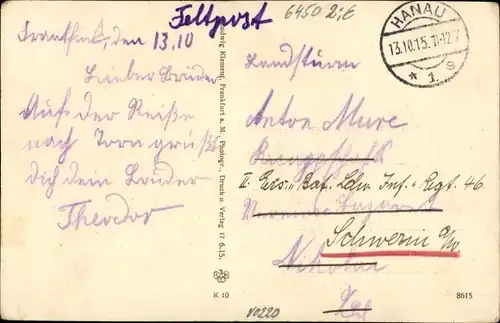 Feldpost
6450 2;6
Frankfurt, den 13.10
Lieber Bruder
Auf der Reise
nach Torn grüßt
Dich dein Bruder
Theodor
Ludwig Klement, Frankfurt a. M., Photogr., Druck u. Verlag 17 6.15.
HANAU
13.10.15.11-12V
* 1. s
Landsturm
Anton Mure
II. Ers. Bat. Ldw. Inf. Regt. 46
Schwerin a/W
Nikolai
K 10
V0220
8615